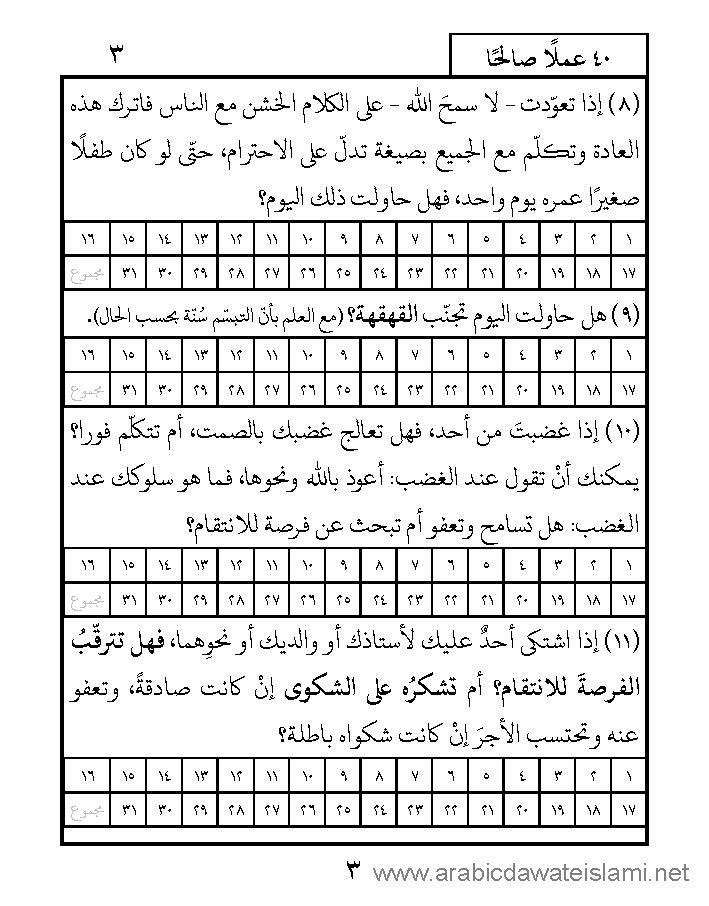 ٤٠ عملًا صالحًا
٣
(٨) إذا تعوّدت - لا سمحَ الله - على الكلام الخشن مع الناس فاترك هذه
العادة وتكلّم مع الجميع بصيغة تدلّ على الاحترام، حتّى لو كان طفلًا
صغيرًا عمره يوم واحد، فهل حاولت ذلك اليوم؟
١ ٢ ٣ ٤ ٥ ٦ ٧ ٨ ٩ ١٠ ١١ ١٢ ١٣ ١٤ ١٥ ١٦
١٧ ١٨ ١٩ ٢٠ ٢١ ٢٢ ٢٣ ٢٤ ٢٥ ٢٦ ٢٧ ٢٨ ٢٩ ٣٠ ٣١ مجموع
(٩) هل حاولت اليوم تجنّب القهقهة؟ (مع العلم بأنّ التبسّم سُنّة بحسب الحال).
١ ٢ ٣ ٤ ٥ ٦ ٧ ٨ ٩ ١٠ ١١ ١٢ ١٣ ١٤ ١٥ ١٦
١٧ ١٨ ١٩ ٢٠ ٢١ ٢٢ ٢٣ ٢٤ ٢٥ ٢٦ ٢٧ ٢٨ ٢٩ ٣٠ ٣١ مجموع
(١٠) إذا غضبتَ من أحد، فهل تعالج غضبك بالصمت، أم تتكلّم فورا؟
يمكنك أنْ تقول عند الغضب: أعوذ بالله ونحوها، فما هو سلوكك عند
الغضب: هل تسامح وتعفو أم تبحث عن فرصة للانتقام؟
١ ٢ ٣ ٤ ٥ ٦ ٧ ٨ ٩ ١٠ ١١ ١٢ ١٣ ١٤ ١٥ ١٦
١٧ ١٨ ١٩ ٢٠ ٢١ ٢٢ ٢٣ ٢٤ ٢٥ ٢٦ ٢٧ ٢٨ ٢٩ ٣٠ ٣١ مجموع
(١١) إذا اشتكى أحدٌ عليك لأستاذك أو والديك أو نحوِهما، فهل تترقّبُ
الفرصةَ للانتقام؟ أم تشكرُه على الشكوى إنْ كانت صادقةً، وتعفو
عنه وتحتسب الأجرَ إنْ كانت شكواه باطلة؟
١ ٢ ٣ ٤ ٥ ٦ ٧ ٨ ٩ ١٠ ١١ ١٢ ١٣ ١٤ ١٥ ١٦
١٧ ١٨ ١٩ ٢٠ ٢١ ٢٢ ٢٣ ٢٤ ٢٥ ٢٦ ٢٧ ٢٨ ٢٩ ٣٠ ٣١ مجموع
٣ www.arabicdawateislami.net